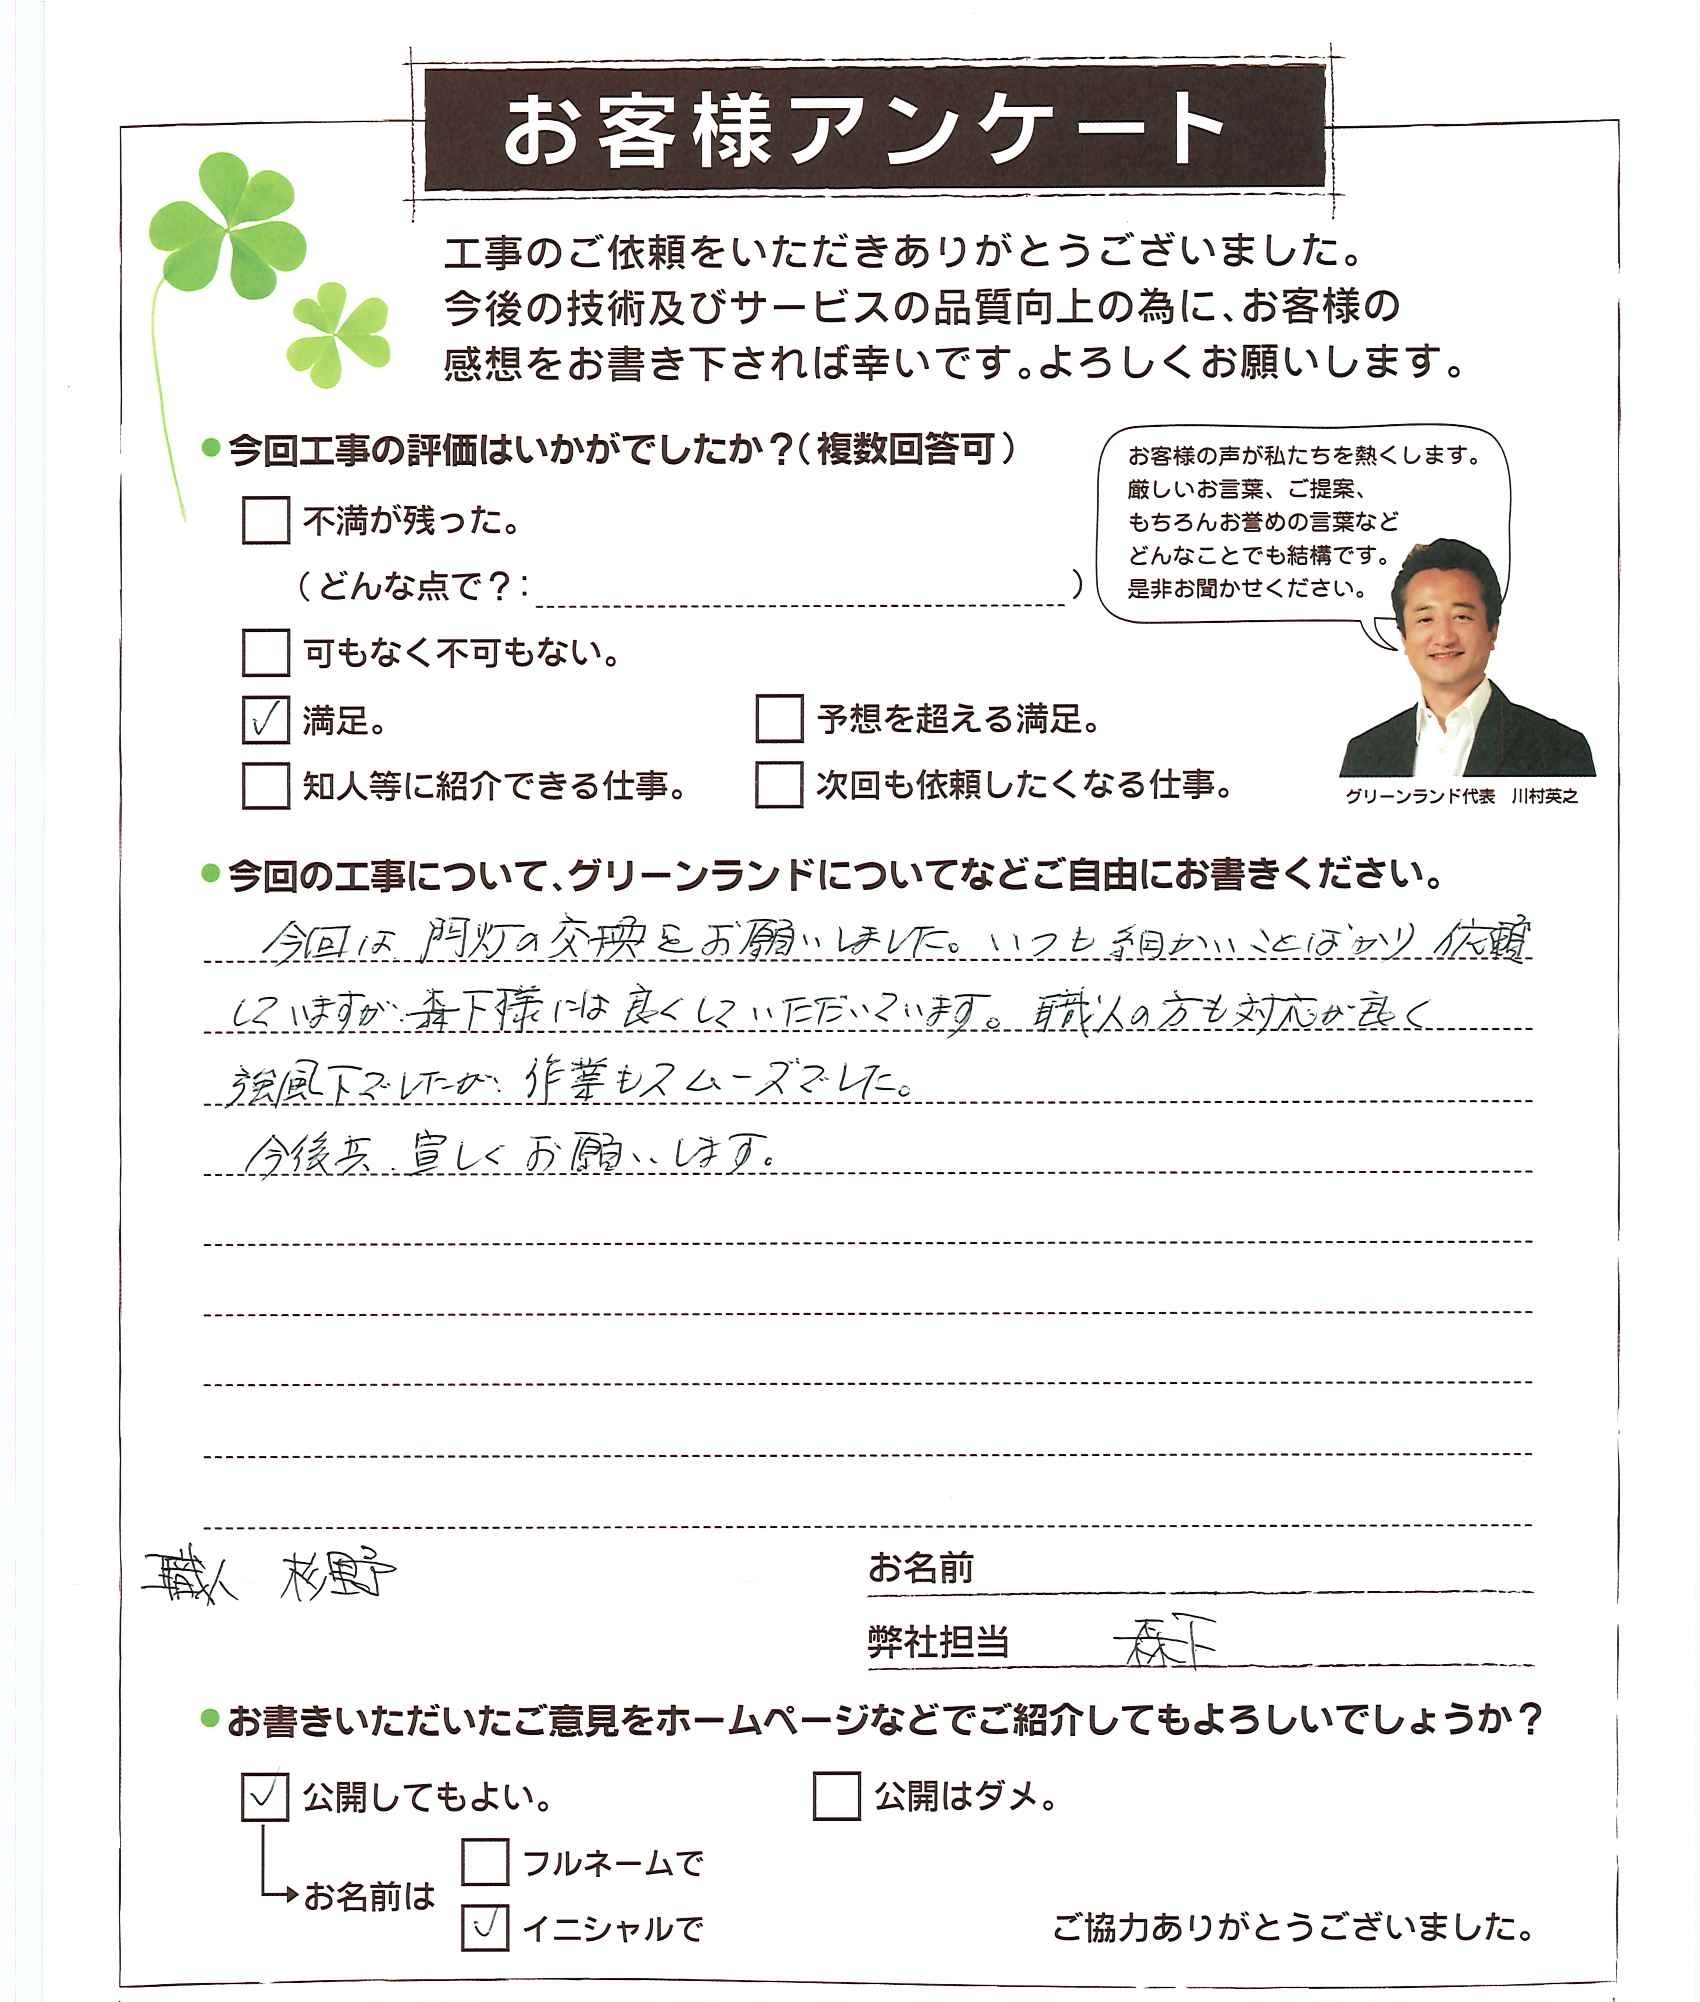 お客様アンケート
工事のご依頼をいただきありがとうございました。
今後の技術及びサービスの品質向上の為に、お客様の
感想をお書き下されば幸いです。よろしくお願いします。
●今回工事の評価はいかがでしたか？（複数回答可）
不満が残った。
（どんな点で？：　　　）
可もなく不可もない。
✓ 満足。
予想を超える満足。
知人等に紹介できる仕事。
次回も依頼したくなる仕事。
お客様の声が私たちを熱くします。
厳しいお言葉、ご提案、
もちろんお誉めの言葉など
どんなことでも結構です。
是非お聞かせください。
グリーンランド代表　川村英之
●今回の工事について、グリーンランドについてなどご自由にお書きください。
今回は、門灯の交換をお願いしました。いつも細かいことばかり依頼
していますが、森下様には良くしていただいています。職人の方も対応が良く
強風下でしたが、作業もスムーズでした。
今後共、宜しくお願いします。
職人　杉野
お名前
弊社担当　森下
●お書きいただいたご意見をホームページなどでご紹介してもよろしいでしょうか？
✓ 公開してもよい。
公開はダメ。
お名前は
フルネームで
✓ イニシャルで
ご協力ありがとうございました。